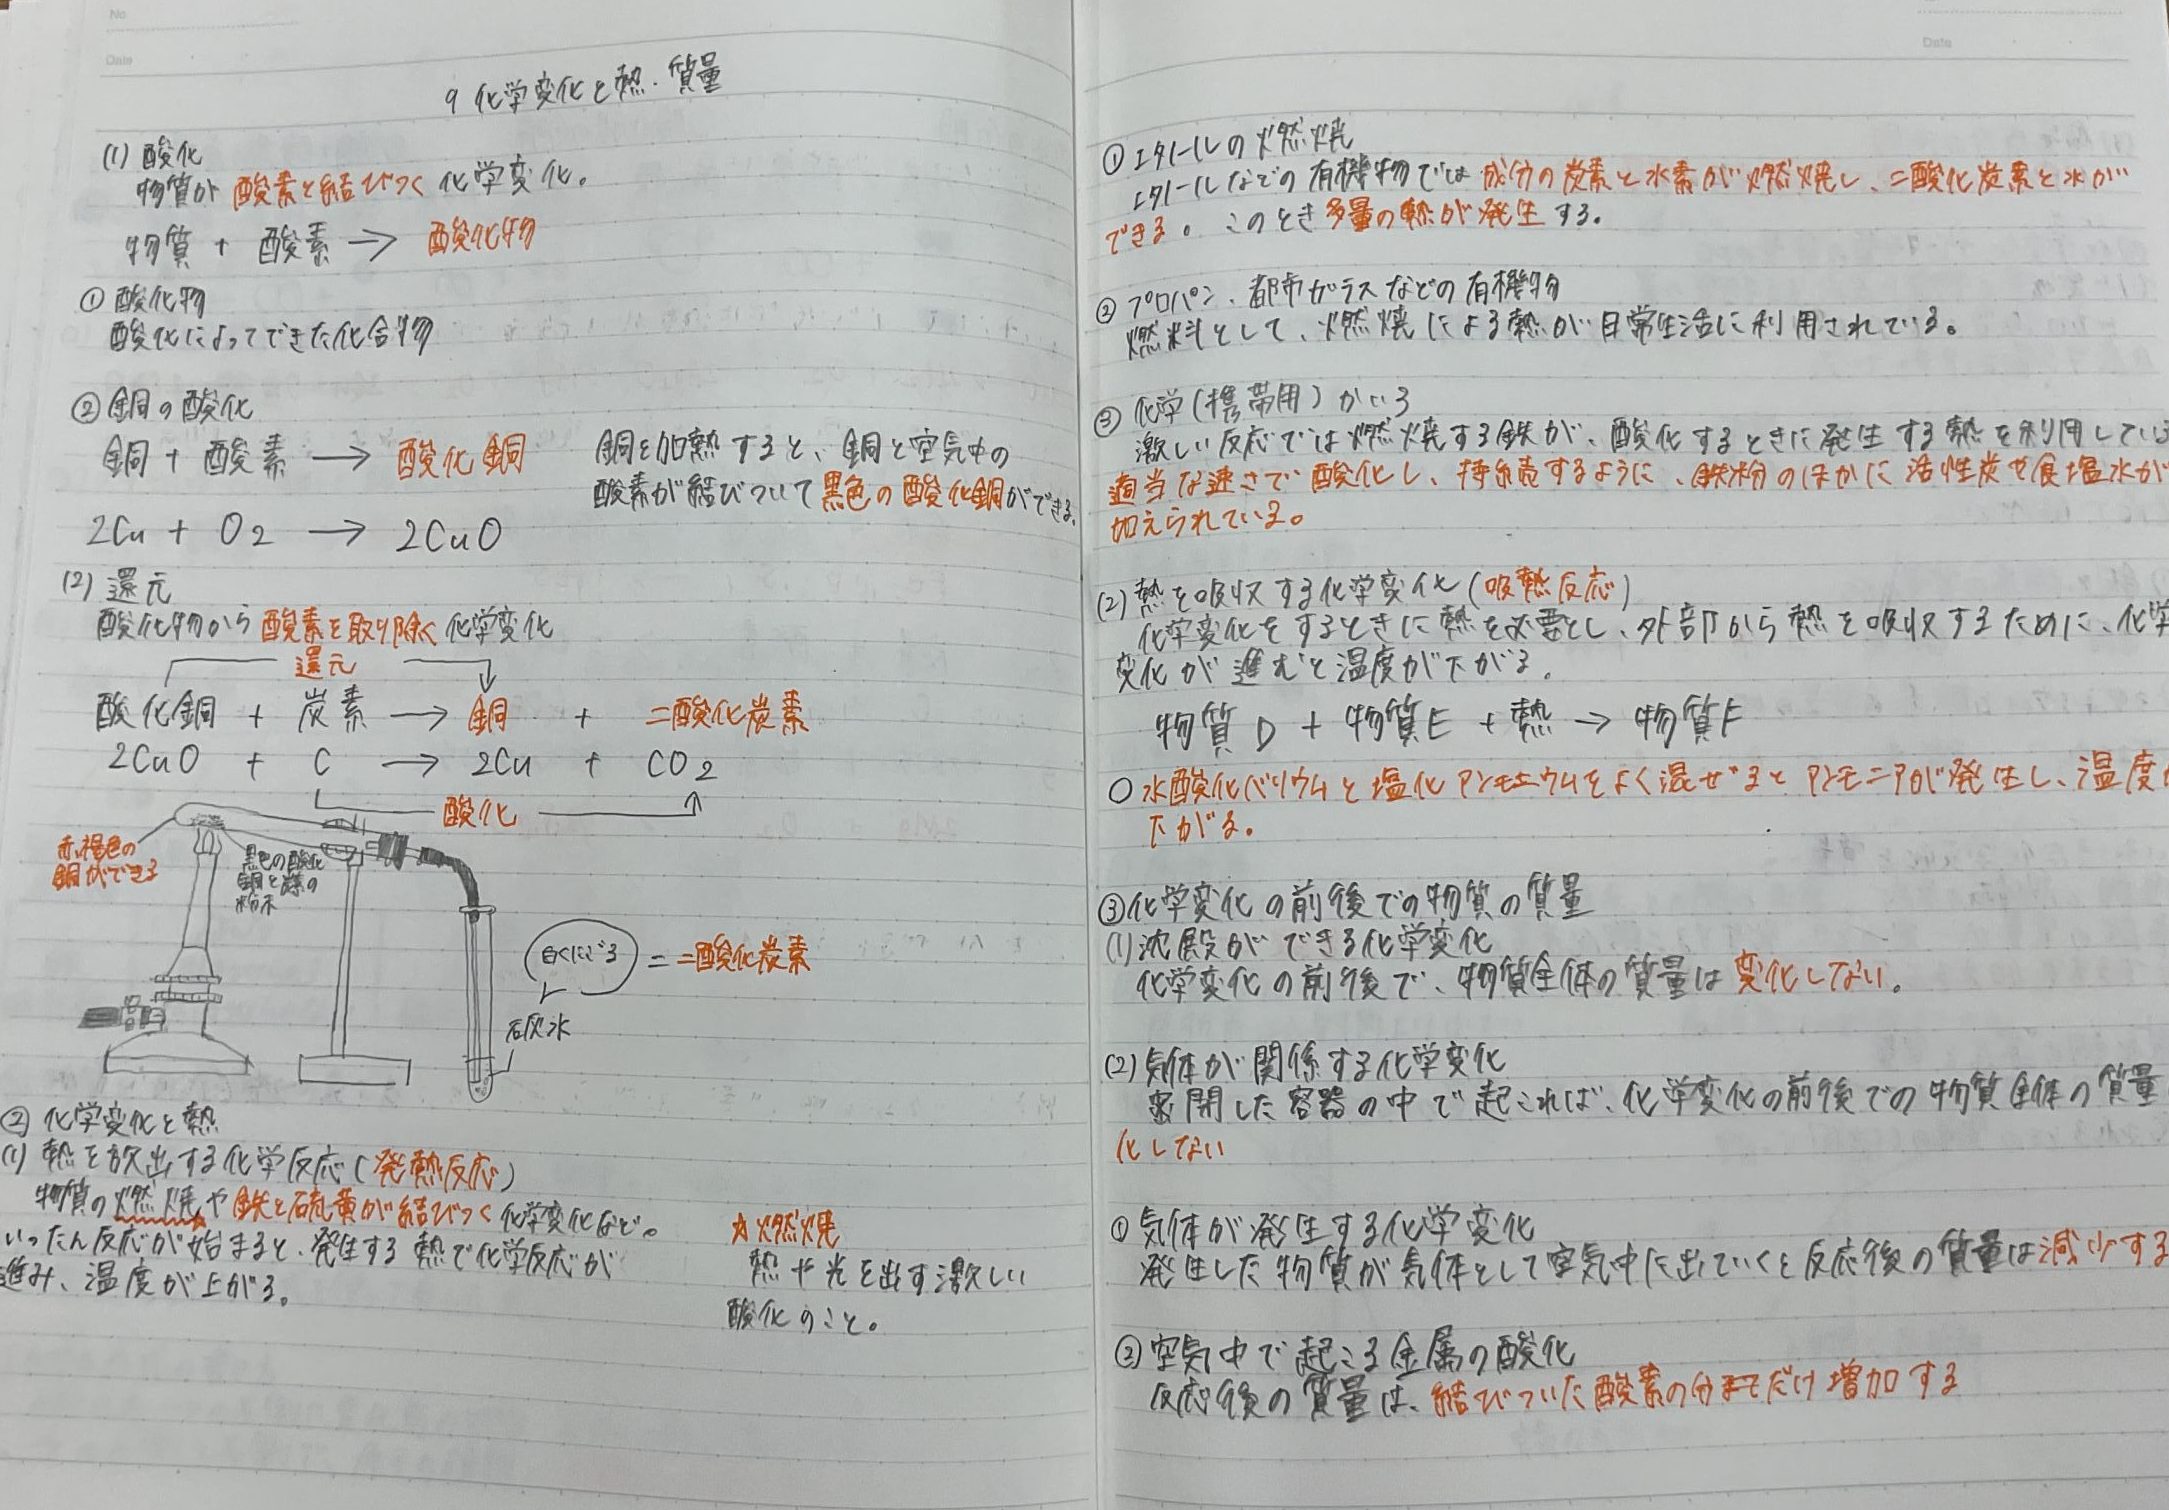 No
Date
9 化学変化と熱・質量
(1) 酸化
物質が 酸素と結びつく 化学変化。
物質 + 酸素 → 酸化物
① 酸化物
酸化によってできた化合物
② 銅の酸化
銅 + 酸素 → 酸化銅
2Cu + O2 → 2CuO
銅を加熱すると、銅と空気中の
酸素が結びついて黒色の酸化銅ができる。
(2) 還元
酸化物から 酸素を取り除く 化学変化
還元
酸化銅 + 炭素 → 銅 + 二酸化炭素
2CuO + C → 2Cu + CO2
酸化
赤褐色の
銅ができる
黒色の酸化
銅と炭素の
粉末
白くにごる = 二酸化炭素
石灰水
② 化学変化と熱
(1) 熱を放出する化学反応(発熱反応)
物質の燃焼や鉄と硫黄が結びつく化学変化など。
いったん反応が始まると、発生する熱で化学反応が
進み、温度が上がる。
☆燃焼
熱や光を出す激しい
酸化のこと。
Date
① エタノールの燃焼
エタノールなどの有機物では成分の炭素と水素が燃焼し、二酸化炭素と水が
できる。このとき多量の熱が発生する。
② プロパン、都市ガラスなどの有機物
燃料として、燃焼による熱が日常生活に利用されている。
③ 化学(携帯用)かいろ
激しい反応では燃焼する鉄が、酸化するときに発生する熱を利用してい
適当な速さで酸化し、持続するように、鉄粉のほかに活性炭や食塩水が
加えられている。
(2) 熱を吸収する化学変化(吸熱反応)
化学変化をするときに熱を必要とし、外部から熱を吸収するために、化学
変化が進むと温度が下がる。
物質D + 物質E + 熱 → 物質F
○ 水酸化バリウムと塩化アンモニウムをよく混ぜるとアンモニアが発生し、温度
下がる。
③ 化学変化の前後での物質の質量
(1) 沈殿ができる化学変化
化学変化の前後で、物質全体の質量は変化しない。
(2) 気体が関係する化学変化
密閉した容器の中で起これば、化学変化の前後での物質全体の質量
化しない
① 気体が発生する化学変化
発生した物質が気体として空気中に出ていくと反応後の質量は減少する
② 空気中で起こる金属の酸化
反応後の質量は、結びついた酸素の分だけ増加する